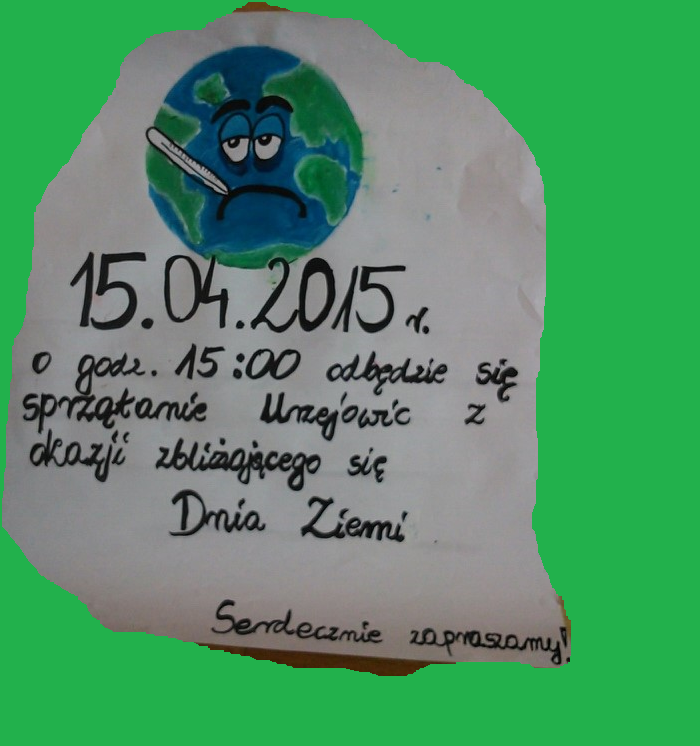 15.04.2015 r.
o godz. 15:00 odbędzie się
sprzątanie Urzejowic z
okazji zbliżającego się
Dnia Ziemi
Serdecznie zapraszamy!